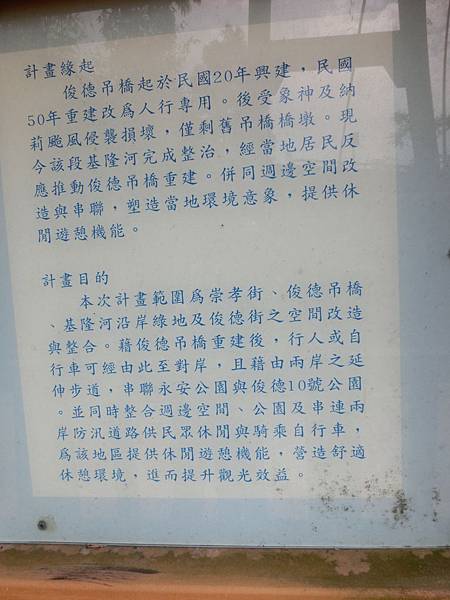 計畫緣起
俊德吊橋起於民國20年興建，民國
50年重建改為人行專用。後受象神及納
莉颱風侵襲損壞，僅剩舊吊橋橋墩。現
今該段基隆河完成整治，經當地居民反
應推動俊德吊橋重建。併同週邊空間改
造與串聯，塑造當地環境意象，提供休
閒遊憩機能。
計畫目的
本次計畫範圍為崇孝街、俊德吊橋
、基隆河沿岸綠地及俊德街之空間改造
與整合。藉俊德吊橋重建後，行人或自
行車可經由此至對岸，且藉由兩岸之延
伸步道，串聯永安公園與俊德10號公園
。並同時整合週邊空間、公園及串連兩
岸防汛道路供民眾休閒與騎乘自行車，
為該地區提供休閒遊憩機能，營造舒適
休憩環境，進而提升觀光效益。